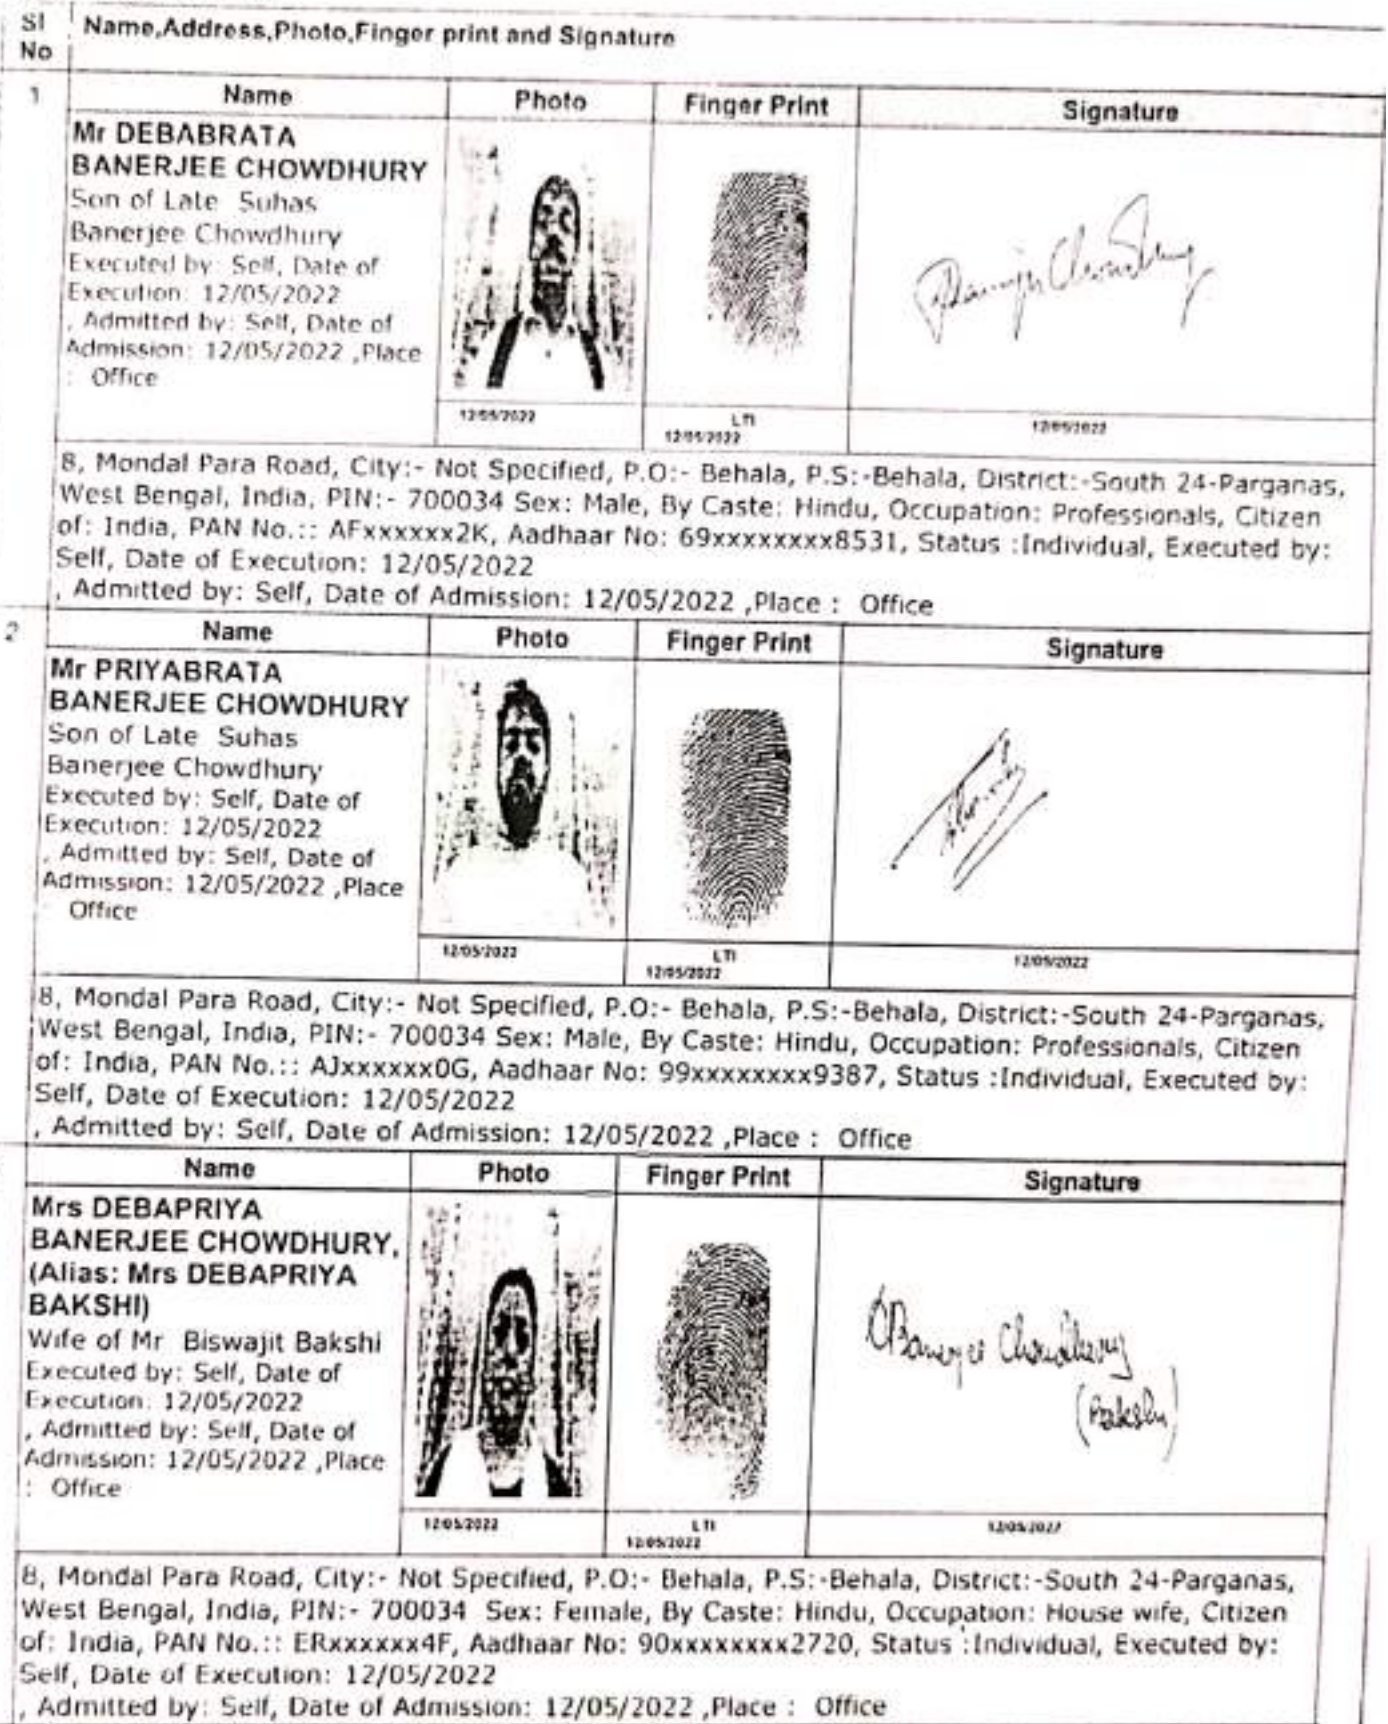 Sl No
Name,Address,Photo,Finger print and Signature
1
Name
Photo
Finger Print
Signature
Mr DEBABRATA
BANERJEE CHOWDHURY
Son of Late Suhas
Banerjee Chowdhury
Executed by: Self, Date of
Execution: 12/05/2022
, Admitted by: Self, Date of
Admission: 12/05/2022 ,Place
: Office
12/05/2022
LTI
12/05/2022
12/05/2022
8, Mondal Para Road, City:- Not Specified, P.O:- Behala, P.S:-Behala, District:-South 24-Parganas,
West Bengal, India, PIN:- 700034 Sex: Male, By Caste: Hindu, Occupation: Professionals, Citizen
of: India, PAN No.:: AFxxxxxx2K, Aadhaar No: 69xxxxxxxx8531, Status :Individual, Executed by:
Self, Date of Execution: 12/05/2022
, Admitted by: Self, Date of Admission: 12/05/2022 ,Place : Office
2
Name
Photo
Finger Print
Signature
Mr PRIYABRATA
BANERJEE CHOWDHURY
Son of Late Suhas
Banerjee Chowdhury
Executed by: Self, Date of
Execution: 12/05/2022
, Admitted by: Self, Date of
Admission: 12/05/2022 ,Place
Office
12/05/2022
LTI
12/05/2022
12/05/2022
8, Mondal Para Road, City:- Not Specified, P.O:- Behala, P.S:-Behala, District:-South 24-Parganas,
West Bengal, India, PIN:- 700034 Sex: Male, By Caste: Hindu, Occupation: Professionals, Citizen
of: India, PAN No.:: AJxxxxxx0G, Aadhaar No: 99xxxxxxxx9387, Status :Individual, Executed by:
Self, Date of Execution: 12/05/2022
, Admitted by: Self, Date of Admission: 12/05/2022 ,Place : Office
Name
Photo
Finger Print
Signature
Mrs DEBAPRIYA
BANERJEE CHOWDHURY,
(Alias: Mrs DEBAPRIYA
BAKSHI)
Wife of Mr Biswajit Bakshi
Executed by: Self, Date of
Execution: 12/05/2022
, Admitted by: Self, Date of
Admission: 12/05/2022 ,Place
: Office
Banerjee Chowdhury
(Bakshi)
12/05/2022
LTI
12/05/2022
12/05/2022
8, Mondal Para Road, City:- Not Specified, P.O:- Behala, P.S:-Behala, District:-South 24-Parganas,
West Bengal, India, PIN:- 700034 Sex: Female, By Caste: Hindu, Occupation: House wife, Citizen
of: India, PAN No.:: ERxxxxxx4F, Aadhaar No: 90xxxxxxxx2720, Status :Individual, Executed by:
Self, Date of Execution: 12/05/2022
, Admitted by: Self, Date of Admission: 12/05/2022 ,Place : Office